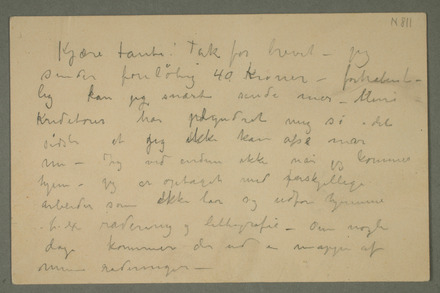 N 811
Kjære tante! Tak for brevet – jeg
sender foreløbig 40 Kroner – forhåbent-
lig kan jeg snart sende mer – Mine
Kreditorer har plyndret mig så det
sidste at jeg ikke kan afse mer
nu – Jeg ved endnu ikke når jeg kommer
hjem – jeg er optaget med forskjellige
arbeider som ikke lar sig udføre hjemme
f. ex radering og lithografi – Om nogle
dage kommer der ud en mappe af
mine raderinger –